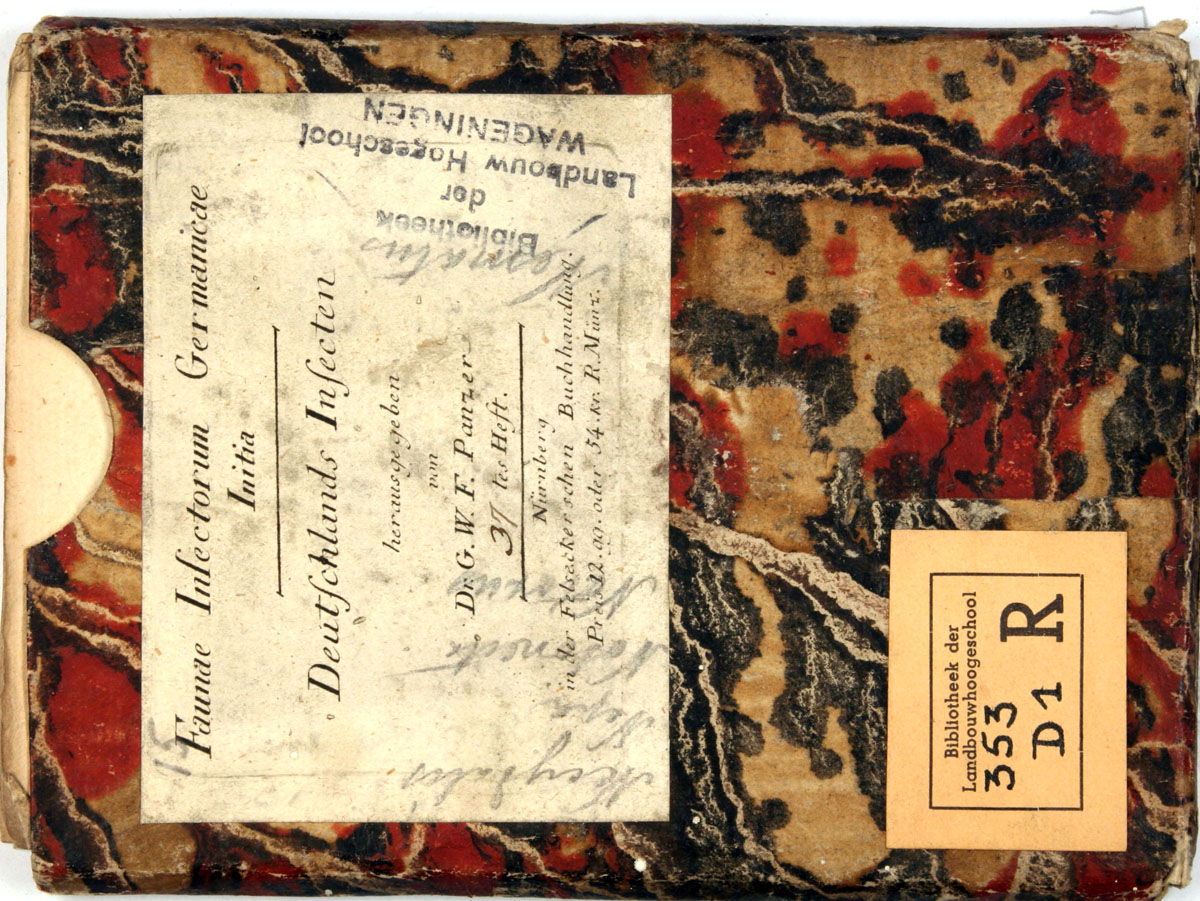 Faunae Insectorum Germanicae
Initia
Deutſchlands Inſecten
herausgegeben
von
Dr. G. W. F. Panzer
37 tes Heft.
Nürnberg
in der Felseckerschen Buchhandlung.
Preis 12. gg. oder 54. kr. R. Münz.
Bibliotheek
der
Landbouw Hogeschool
WAGENINGEN
Bibliotheek der
Landbouwhoogeschool
353
D1 R